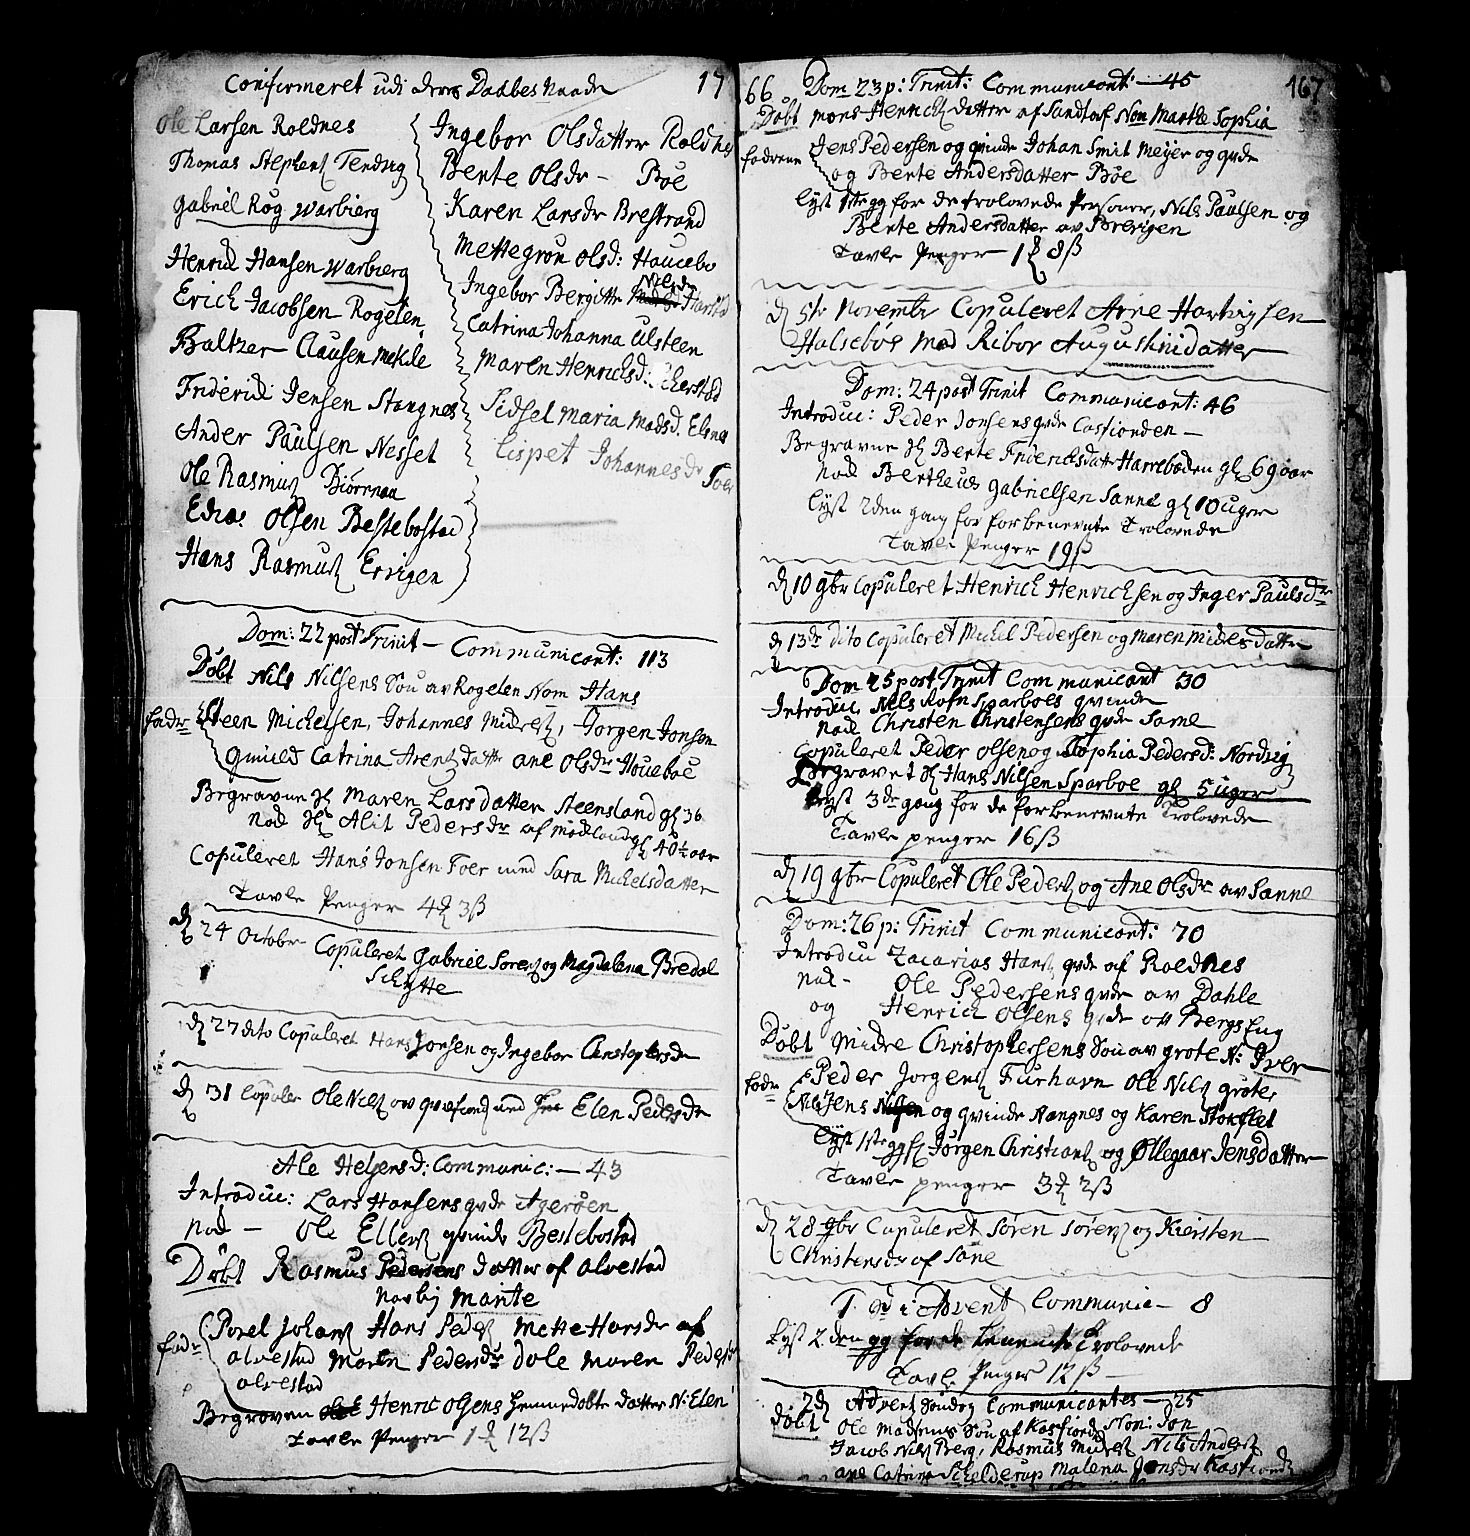 Confirmeret udi deres Daabes Naade 17
Ole Larsen Roldnes
Thomas Stephens
Gabriel Rog Warbierg
Henrik Hansen Warbierg
Erich Jacobsen Rogelen
Baltzer Clausen
Friderik Jensen Stangnes
Ander Paulsen Nesset
Ole Rasmus
Olsen Bestebostad
Hans Rasmus Ervigen
Ingebor Olsdatter Roldnes
Berte Olsdr – Böe
Karen Larsdr Brestrand
Mettegron Olsd:
Ingebor Bergitte Nilsdr
Catrina Johanna Ulsteen
Maren Henrichsd:
Sidsel Maria Madsd.
Lispet Johannesdr
Dom: 22 post Trinit – Communicant: 113
Döbt Nils Nilsens Sön av Rogelen Nom Hans
fadr Steen Michelsen, Johannes, Jorgen Jonsen
Catrina Arentsdatter Ane Olsdr
Begravne Maren Larsdatter Steensland gl 36
nok Alit Pedersdr af gl 40½ aar
Copuleret Hans Jonsen Foer med Sara Michelsdatter
Tavle Penger 4 3ß
d 24 Octobr Copuleret Gabriel Sorens og Magdalena Bredal
Schytte
d 27 dito Copuleret Hans Jonsen og Ingebor Christophersdr
d 31 Copuler Ole Nils av med Elen Pedersdr
Ale Helgensd: Communic: – 43
Introduc: Lars Hansens qvde
nok – Ole Ellers qvinde Bestebostad
Döbt Rasmus Pedersens datter af Alvestad
Navnlig Marite
fadr Povel Johans Hans Peders Mette Hansdr af
Alvestad Maren Pedersdr Dale Maren Pedersdr
Alvestad
Begraven Henric Olsens hiemmedöbte datter N: Elen
Tavle Penger 1 12ß
66 Dom 23 p: Trinit: Communicant – 45 167
Döbt Mons Henrichs datter af Sandtorf Nom Marthe Sophia
fadrene Jens Pedersen og qvinde Johan Smit Meyer og qvde
og Berte Andersdatter Böe
Lyst 1ste gg for de trolovede Personer, Nils Paulsen og
Berte Andersdatter av Brevigen
Tavle Penger 1 8ß
d 5te Novembr Copuleret Arne Hartvigsen
Halseböe med Ribor Augustinidatter
Dom: 24 post Trinit Communicant: 46
Introduc: Peder Jonsens qvde Casfiorden –
Begravne Berte Friderichsdatr gl 69 aar
nok Bertheus Gabrielsen Sanne gl 10 uger
Lyst 2den gang for forbenevnte Trolovede
Tavle Penger 19ß
d 10 9br Copuleret Henrich Henrichsen og Inger Paulsdr
d 13de dito Copuleret Mikel Pedersen og Maren datter
Dom 25 post Trinit Communicant 30
Introduc Nils Sparboes qvinde
nok Christen Christensens qvde Sorne
Copuleret Peder Olsen og Sophia Pedersd: Nordvig
Begravet Hans Nilsen Sparboe gl 5 uger
Lyst 3de gang for de forbenevnte Trolovede
Tavle penger 16ß
d 19 9br Copuleret Ole Peders og Ane Olsdr av Sanne
Dom: 26 p: Trinit Communicant: 70
Introduc Zacarias Hans qvde af Roldnes
nok – Ole Pedersens qvde av Dahle
og Henrich Olsens qvde av Bergs Eng
Döbt Christophersens Sön av Grote N: Iver
fadr Peder Jorgens Furhavn Ole Nils Grote
Jens og qvinde Nangnes og Karen Stokflet
Lyst 1ste gg Jörgen Christians og Øllegaar Jensdatter
Tavle penger 3 2ß
d 28 9br Copuleret Sören Sörens og Kiersten
Christensdr af Sane
1 Sd i Advent Communic – 8
Lyst 2den gg for de Trolovede
Tavle Penger 12ß –
2d Advent Söndag Communicantes – 25
Döbt Ole Madsens Sön af Kasfiord Nom: Jon
Jacob Nils Berg, Rasmus Nils Anders
Ane Catrina Schelderup Malena Jonsdr Kasfiord